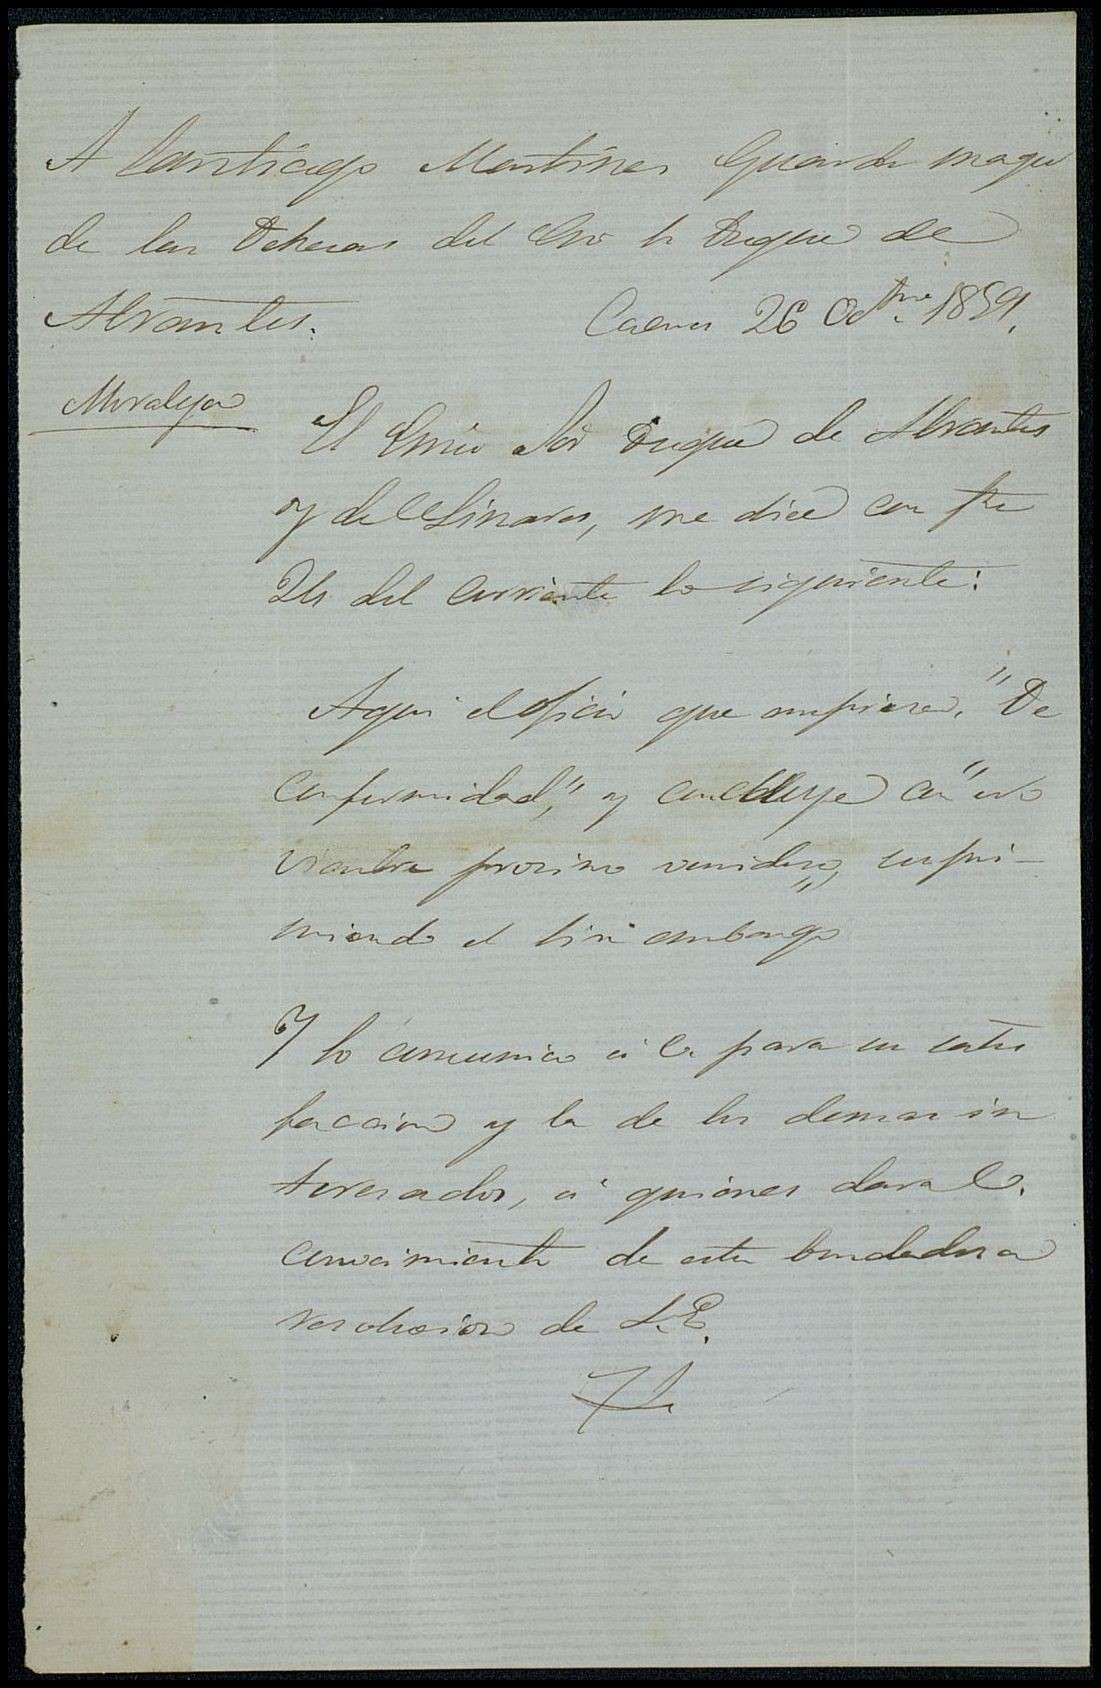 A Santiago Martines Guarda mayor
de las Dehesas del Exmo Sr Duque de
Abrantes.
Caceres 26 Octbre 1859.
Moraleja
El Exmo Sor Duque de Abrantes
y de Linares, me dice con fha
del corriente lo siguiente:
Aqui el oficio que empieza, "De
conformidad", y concluye con "no
viembre procsimo venidero", supri-
miendo el sin embargo
Y lo comunico á V. para su satis
faccion y la de los demas in
teresados, á quienes dara V.
conocimiento de esta bondadosa
resolucion de S. E.